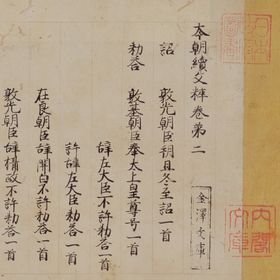 本朝續文粹卷第二
詔 敦光朝臣朔旦冬至詔一首
勅荅 敦基朝臣奉太上皇尊号一首
辞左大臣不許勅荅一首
許辞左大臣勅荅一首
在良朝臣辞關白不許勅荅一首
敦光朝臣辞攝政不許勅荅一首
金澤文庫
内閣文庫